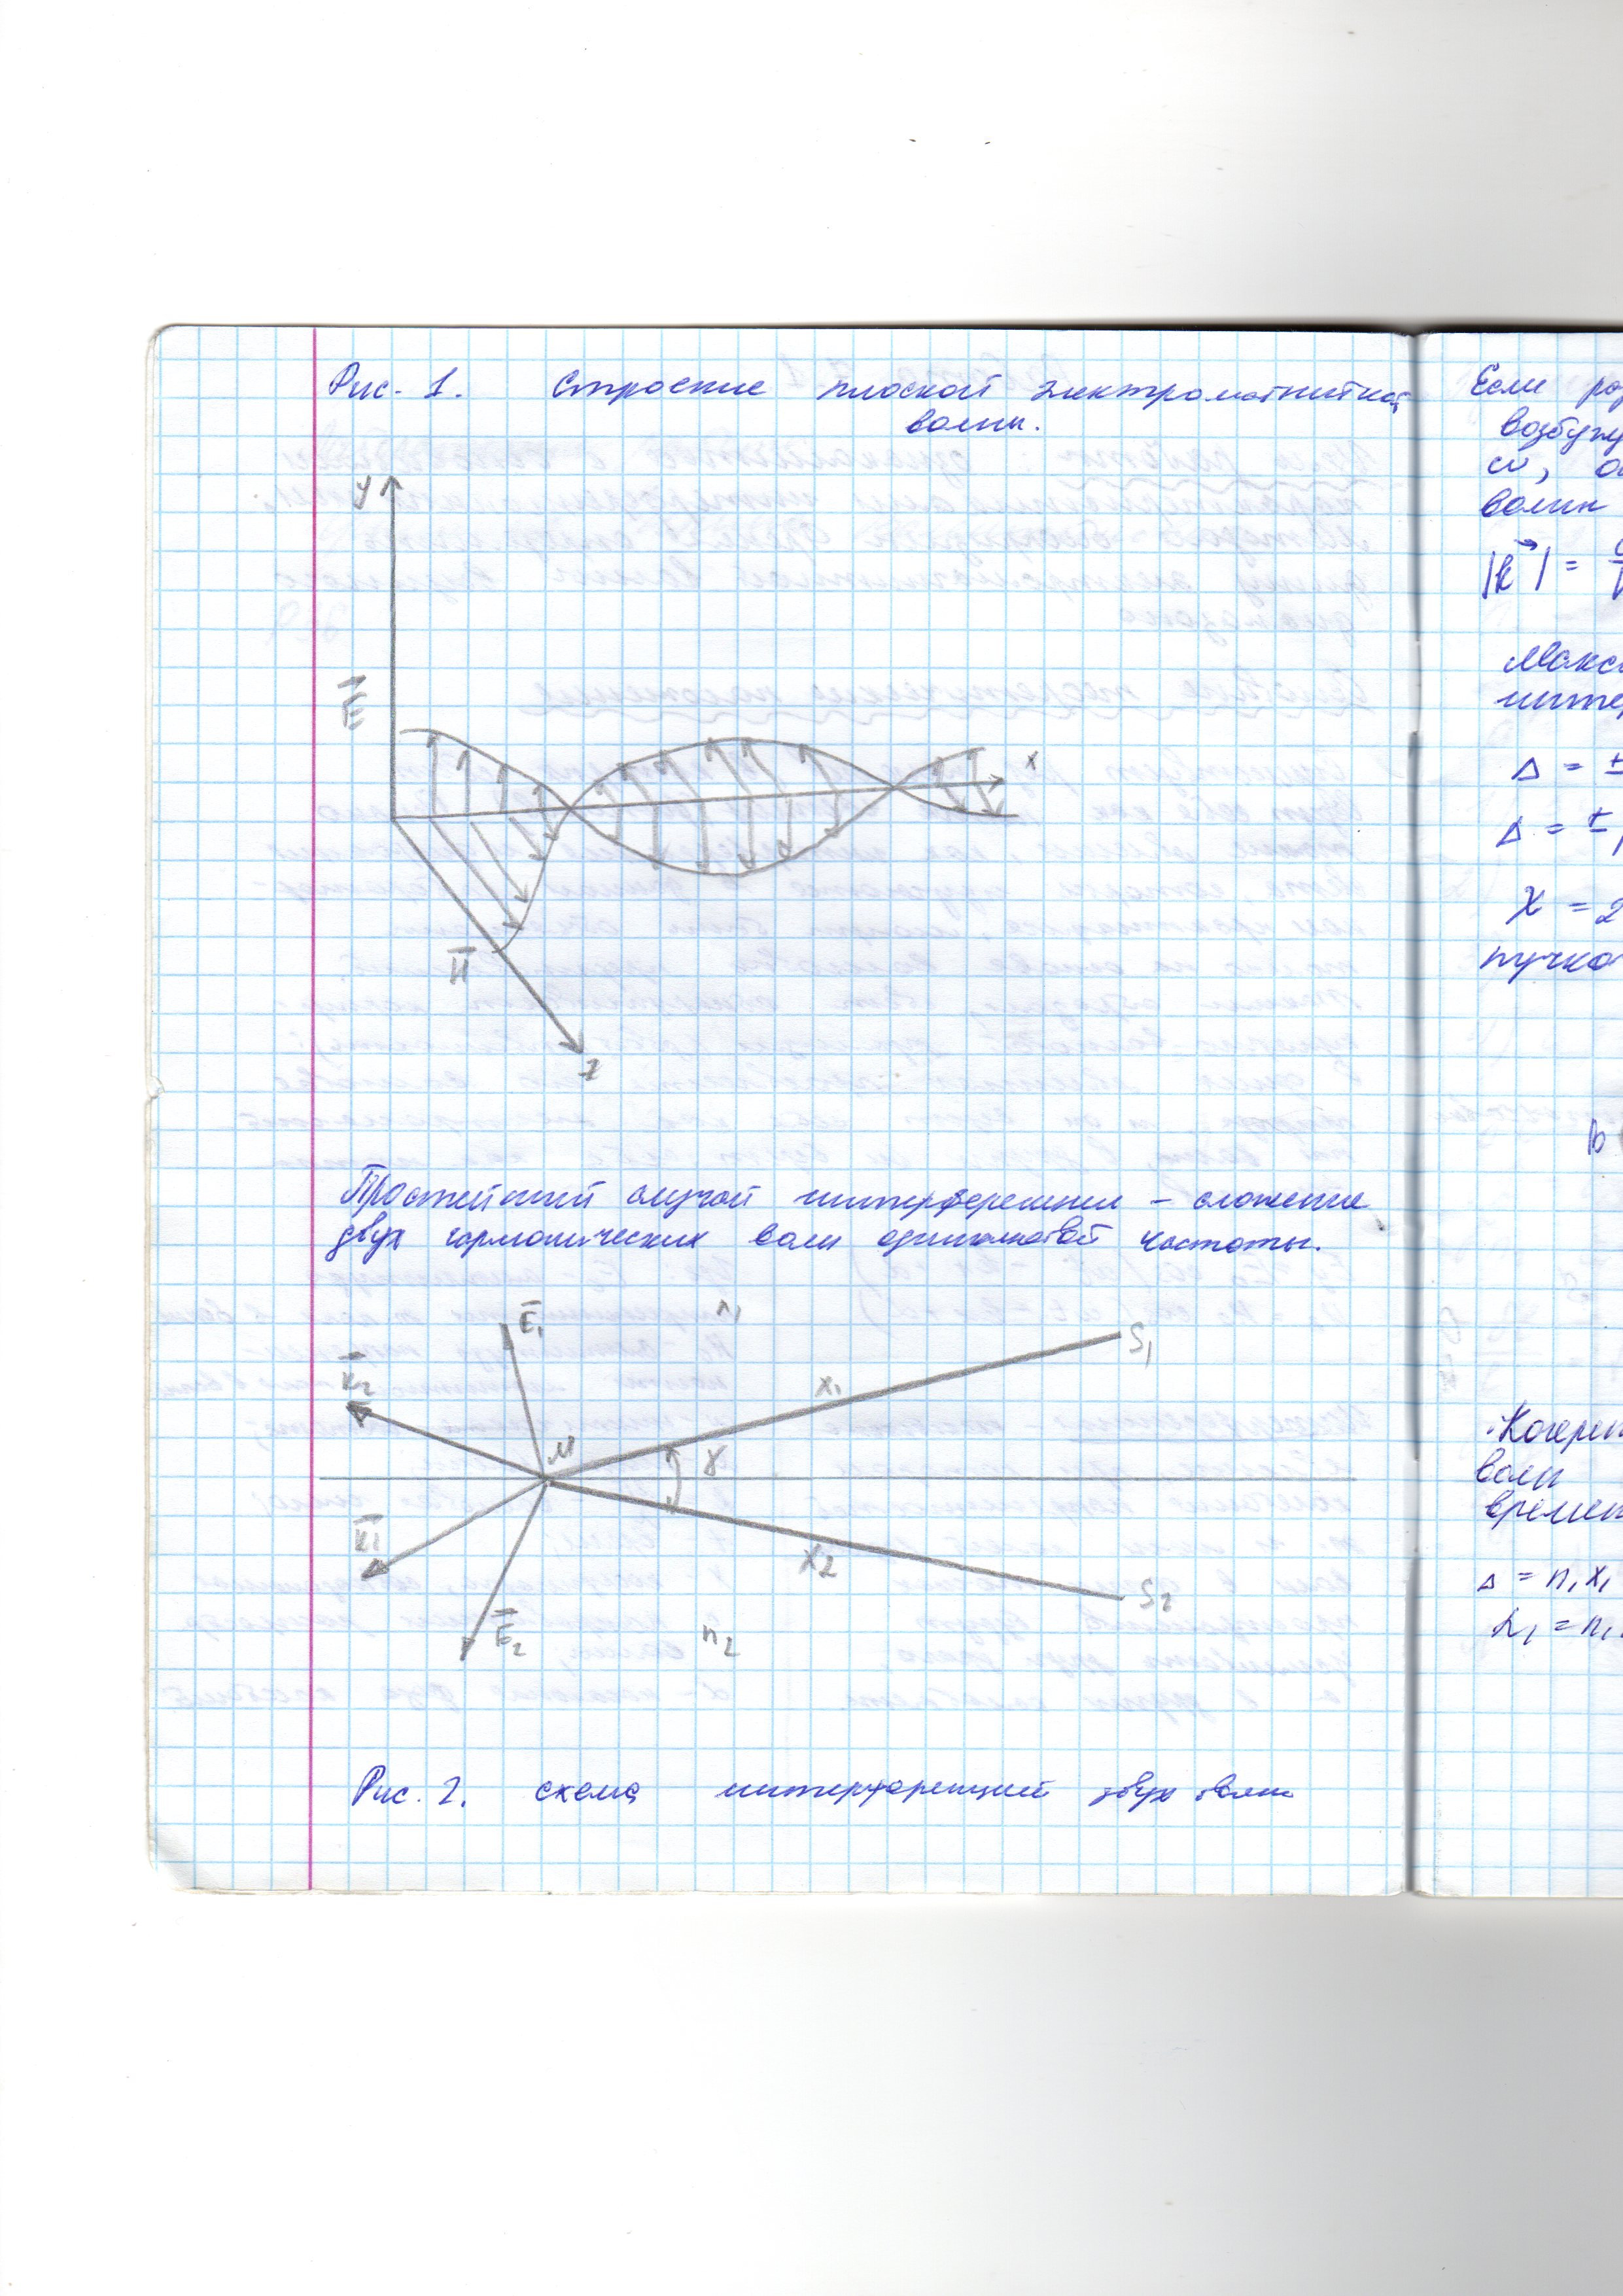 Рис. 1. Строение плоской электромагнитной
волны.
y
E
x
H
z
Простейший случай интерференции – сложение
двух гармонических волн одинаковой частоты.
E₁
n₁
S₁
k₂
x₁
M
γ
k₁
x₂
S₂
E₂
n₂
Рис. 2. схема интерференций двух волн
Если
возбуж
ω,
волны
|k| =
Макс
инте
Δ = ±
Δ = ±
X = 2
пучко
b
Когерен
волн
времен
Δ = n₁x₁
L₁ = n₁